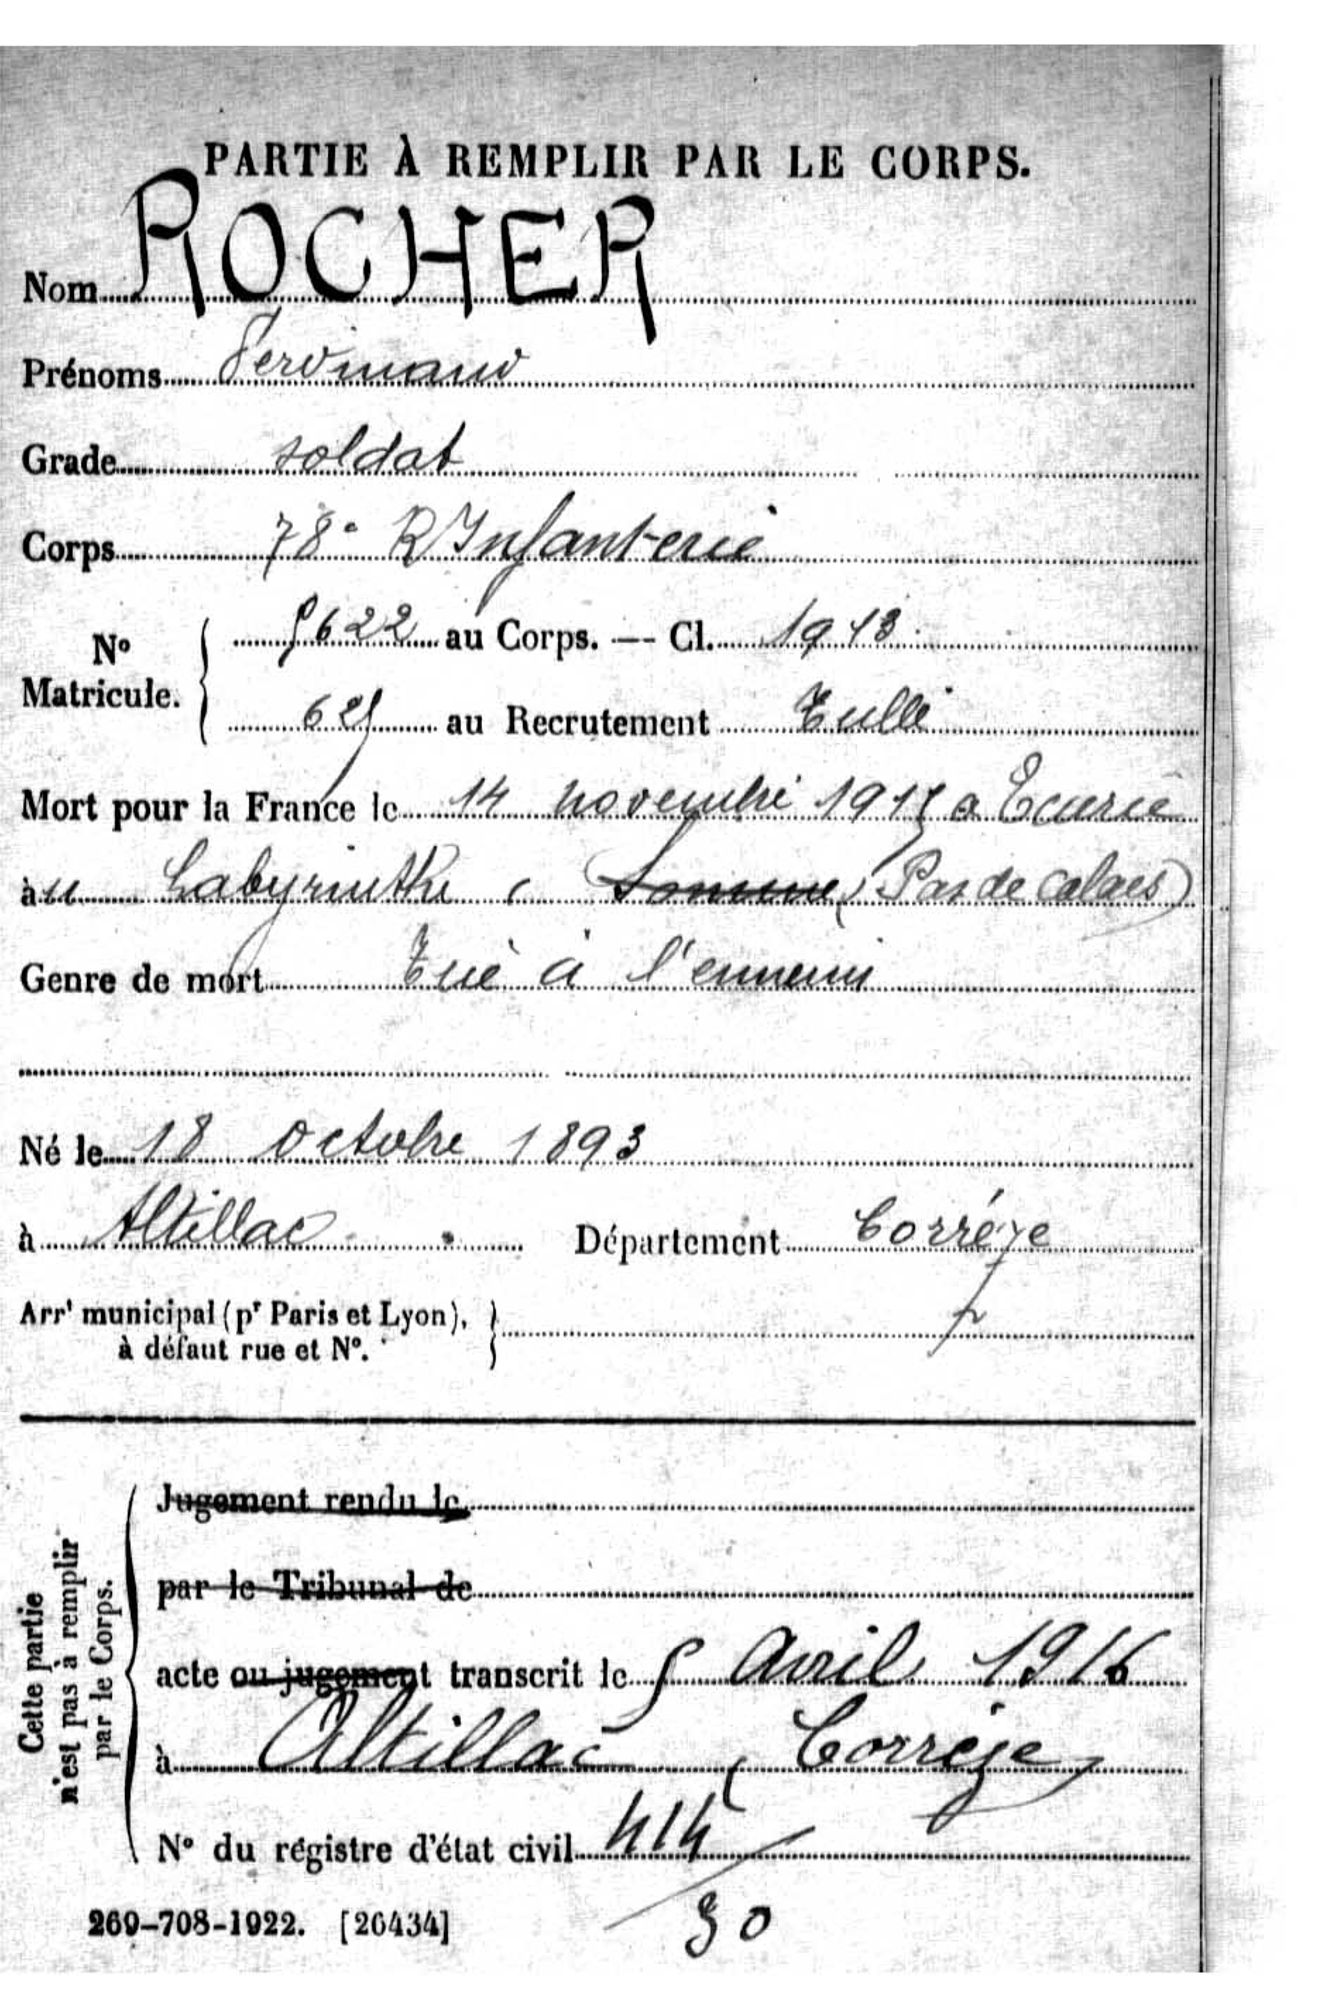 PARTIE À REMPLIR PAR LE CORPS.
Nom ROCHER
Prénoms Ferdinand
Grade soldat
Corps 78e R Infanterie
No Matricule. { 5622 au Corps. — Cl. 1913
625 au Recrutement Tulle
Mort pour la France le 14 novembre 1915 a Ecurie
au Labyrinthe ( Somme, (Pas de Calais)
Genre de mort Tué à l'ennemi
Né le 18 Octobre 1893
à Altillac Département Corrèze
Arrt municipal (pr Paris et Lyon),
à défaut rue et No.
Cette partie
n'est pas à remplir
par le Corps.
Jugement rendu le
par le Tribunal de
acte ou jugement transcrit le 5 Avril 1916
à Altillac (Corrèze)
No du registre d'état civil 414/30
269-708-1922. [26434]